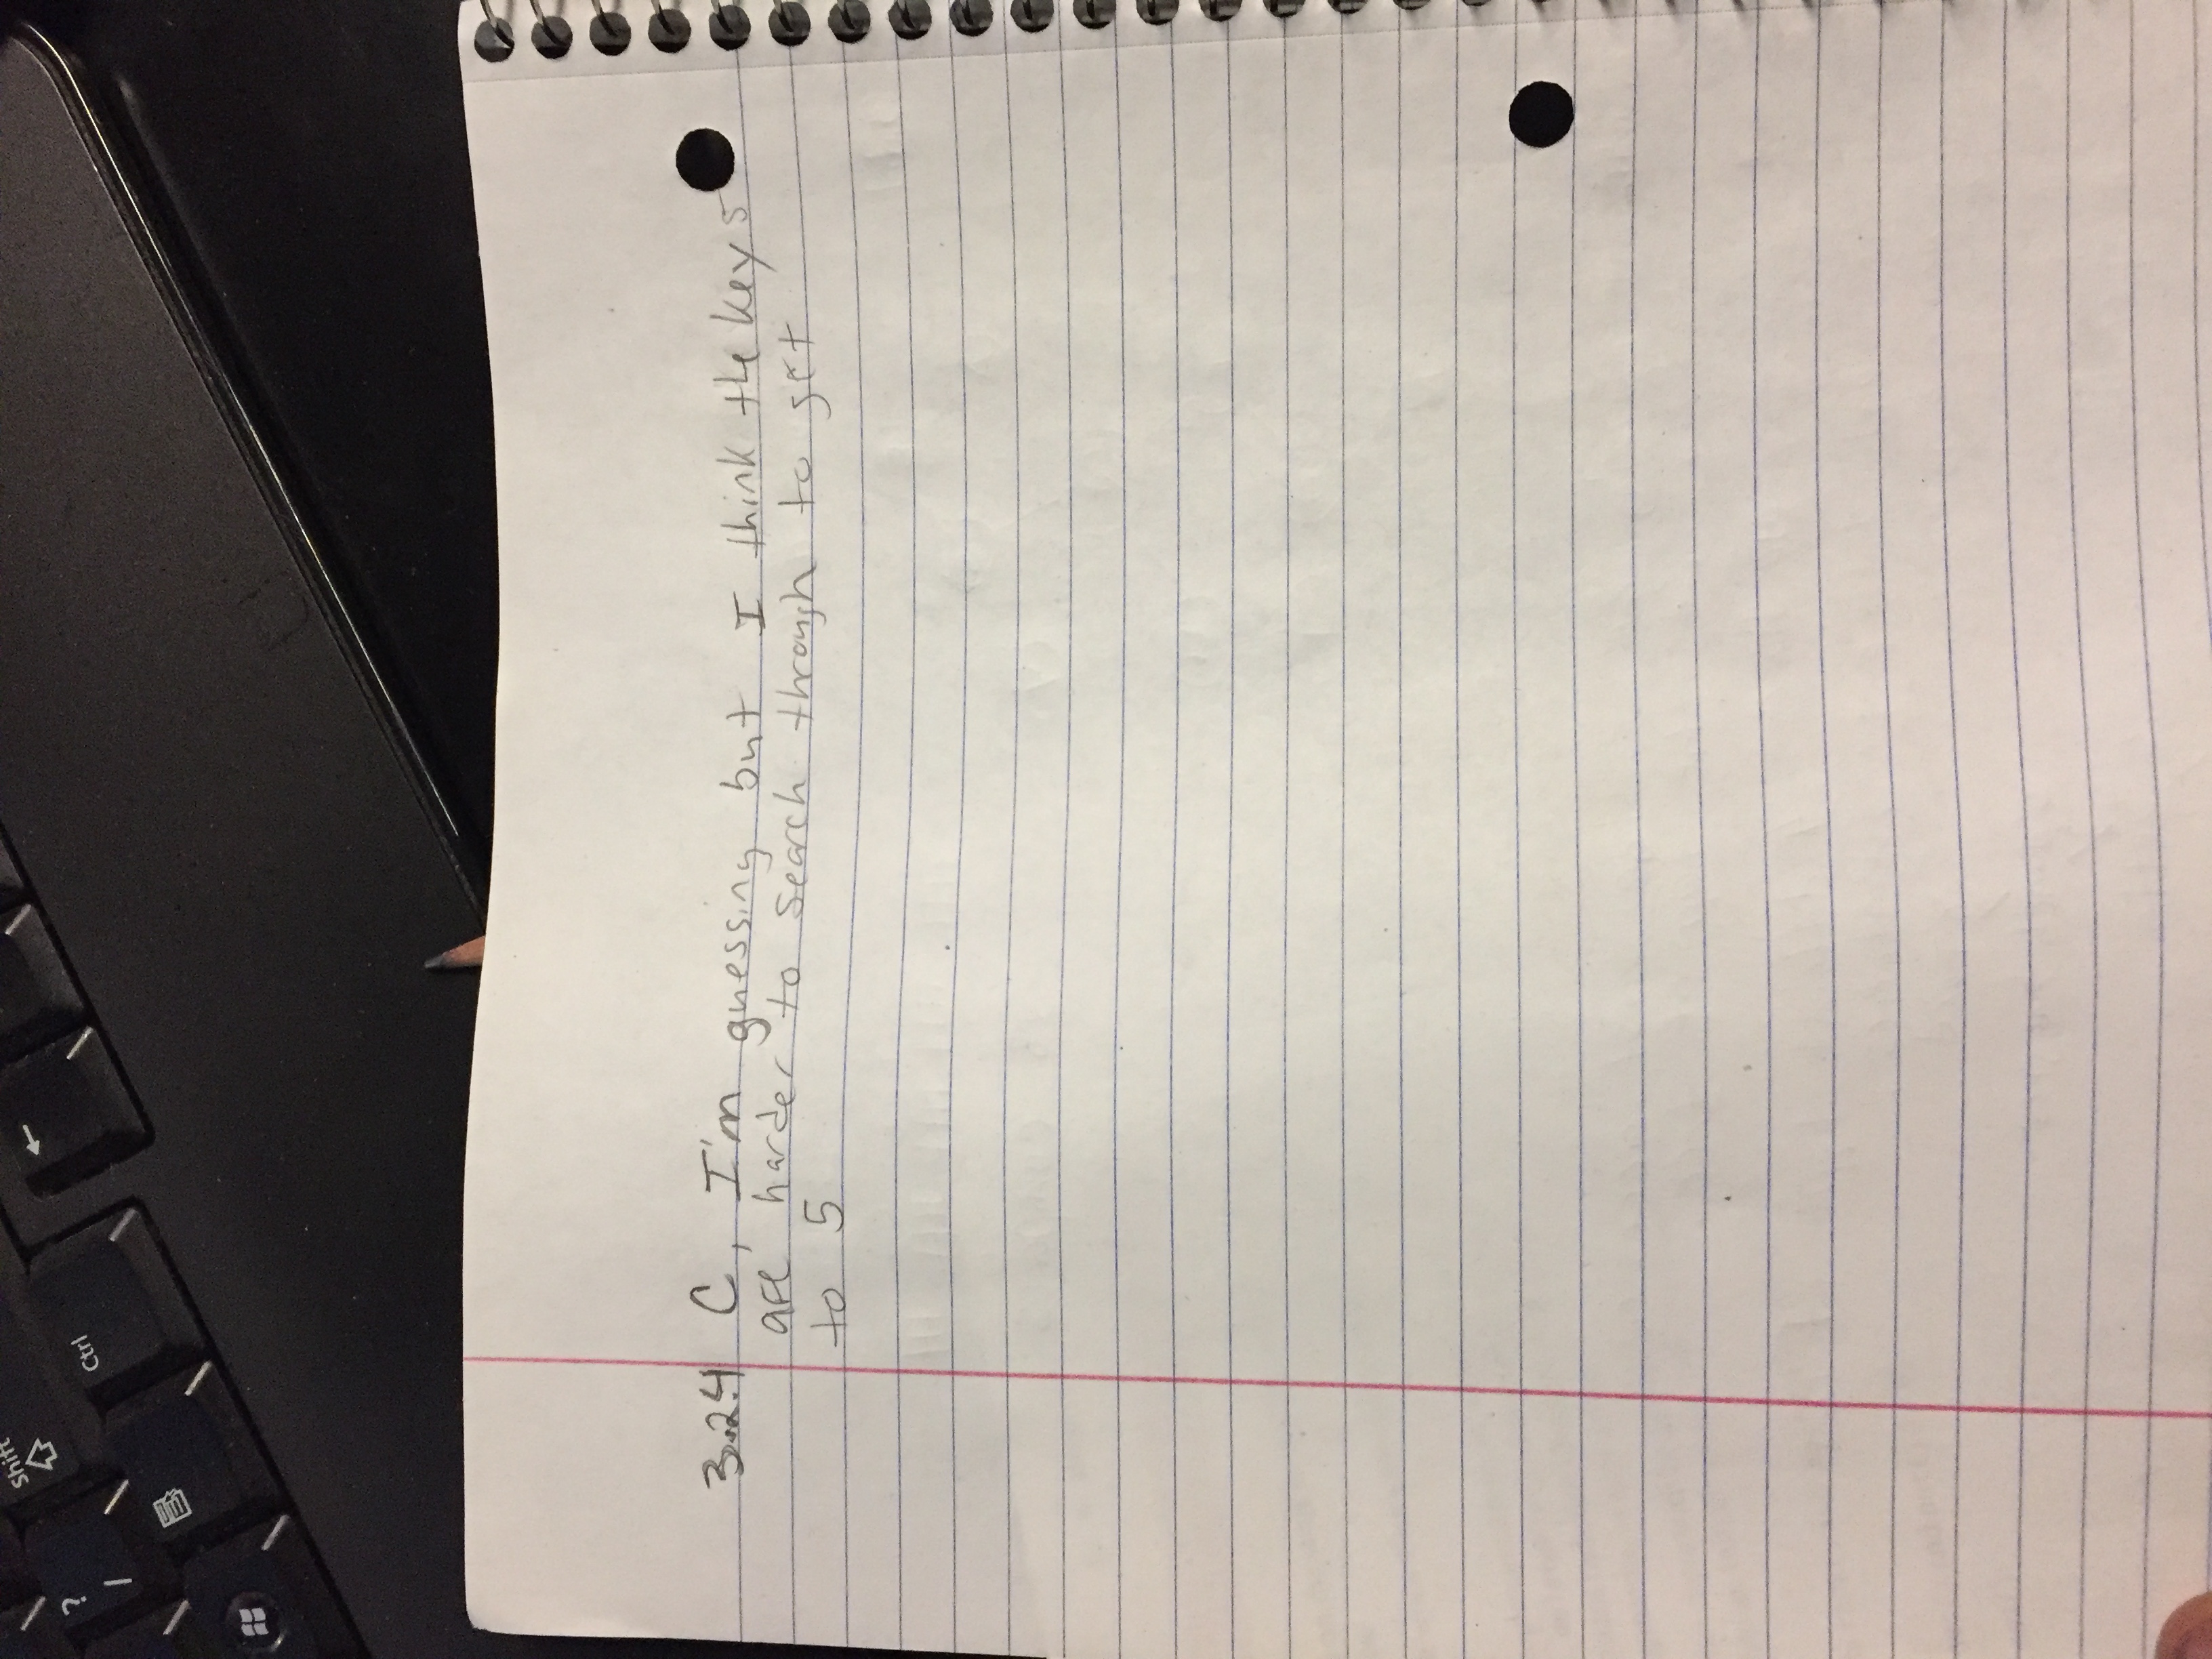 Shift
?
/
Ctrl
←
3.2.4 C, I'm guessing but I think the keys
are harder to search through to get
to 5